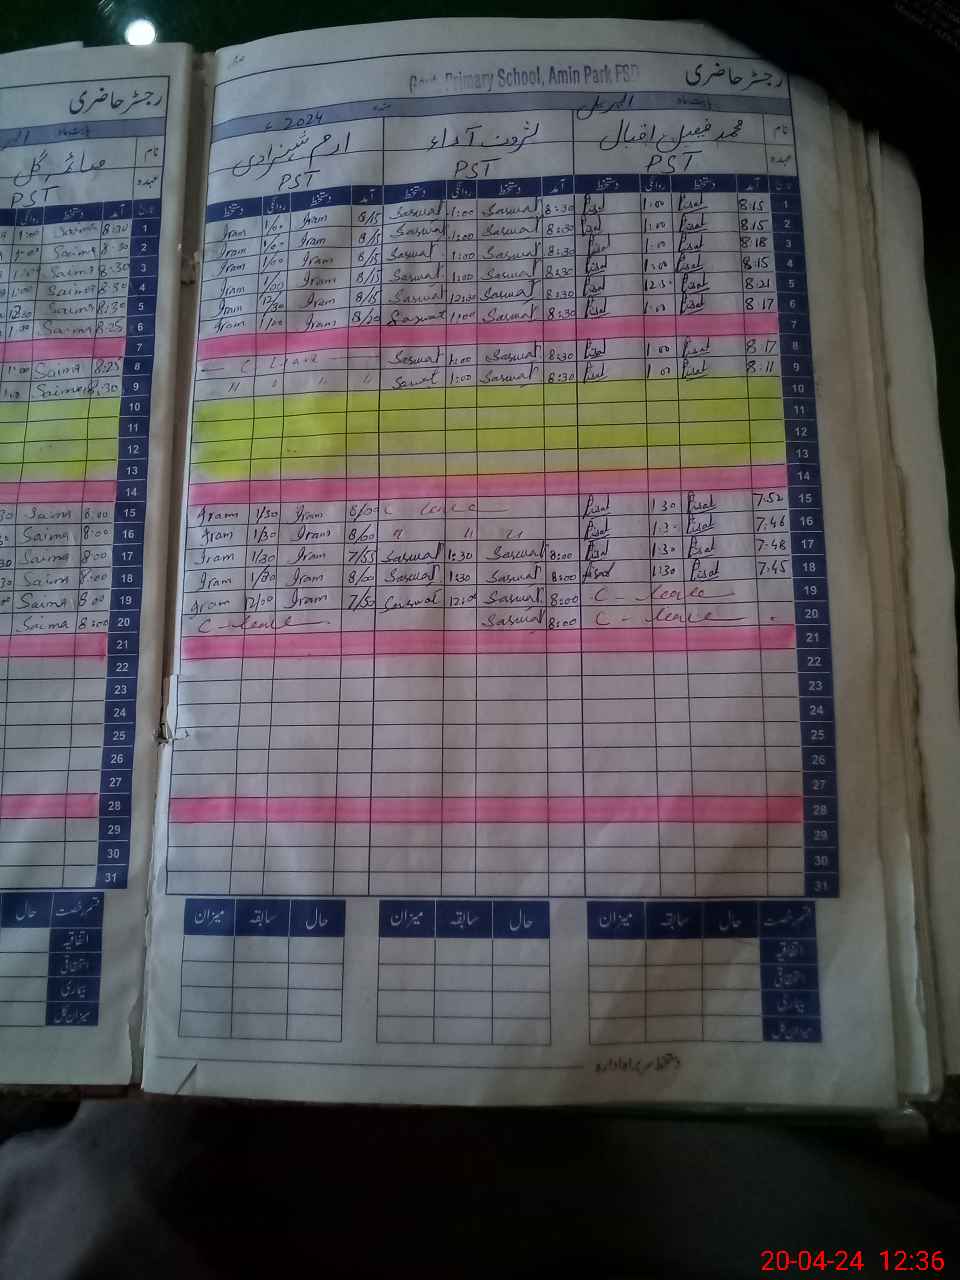 رجسٹر حاضری
Govt. Primary School, Amin Park FSD
رجسٹر حاضری
2024
نام محمد فیصل اقبال ثروت آداء ارم شہزادی
نام صائمہ گل
عہدہ PST PST PST
عہدہ PST
تاریخ آمد دستخط روانگی دستخط آمد دستخط روانگی دستخط آمد دستخط روانگی دستخط
تاریخ آمد دستخط روانگی
1 8:15 1:00 8:30 Saswat 1:00 Saswat 8/15 Iram 1/00 Iram
2 8:15 1:00 8:30 Saswat 1:00 Saswat 8/15 Iram 1/00 Iram
3 8:18 1:00 8:30 Saswat 1:00 Saswat 8/15 Iram 1/00 Iram
4 8:15 1:00 8:30 Saswat 1:00 Saswat 8/15 Iram 1/00 Iram
5 8:21 12:30 8:30 Saswat 12:30 Saswat 8/15 Iram 12/30 Iram
6 8:17 1:00 8:30 Saswat 1:00 Saswat Iram 1/00 Iram
7
8 8:17 1:00 8:30 Saswat 1:00 Saswat C Leave
9 8:11 1:00 8:30 Saswat 1:00 Sawat " " " "
10
11
12
13
14
15 7:52 1:30 C leave 8/00 Iram 1/30 Iram
16 7:46 1:30 " " " 8/00 Iram 1/30 Iram
17 7:48 1:30 8:00 Saswat 1:30 Saswat 7/55 Iram 1/30 Iram
18 7:45 1:30 8:00 Saswat 1:30 Saswat 8/00 Iram 1/30 Iram
19 C - leave 8:00 Saswat 12:00 Saswat 7/50 Iram 12/00 Iram
20 C - leave 8:00 Saswat C - leave
21
22
23
24
25
26
27
28
29
30
31
1 8:30 Saima 1:00
2 8:30 Saima 1:00
3 8:30 Saima 1:00
4 8:30 Saima 1:00
5 8:30 Saima 12:30
6 8:25 Saima 1:00
7
8 8:25 Saima 1:00
9 8:30 Saima 1:00
10
11
12
13
14
15 8:00 Saima
16 8:00 Saima
17 8:00 Saima
18 8:00 Saima
19 8:00 Saima
20 8:00 Saima
21
22
23
24
25
26
27
28
29
30
31
قسم رخصت حال سابقہ میزان حال سابقہ میزان حال سابقہ میزان
اتفاقیہ
استحقاقی
بیماری
میزان کل
قسم رخصت حال
اتفاقیہ
استحقاقی
بیماری
میزان کل
دستخط سربراہ ادارہ
20-04-24 12:36